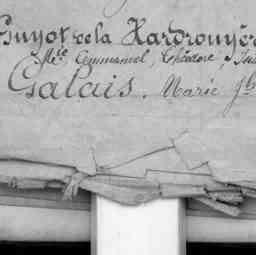 Guyot de la Hardrouyère
Mle Emmanuel, Théodore,
Galais. Marie Jh